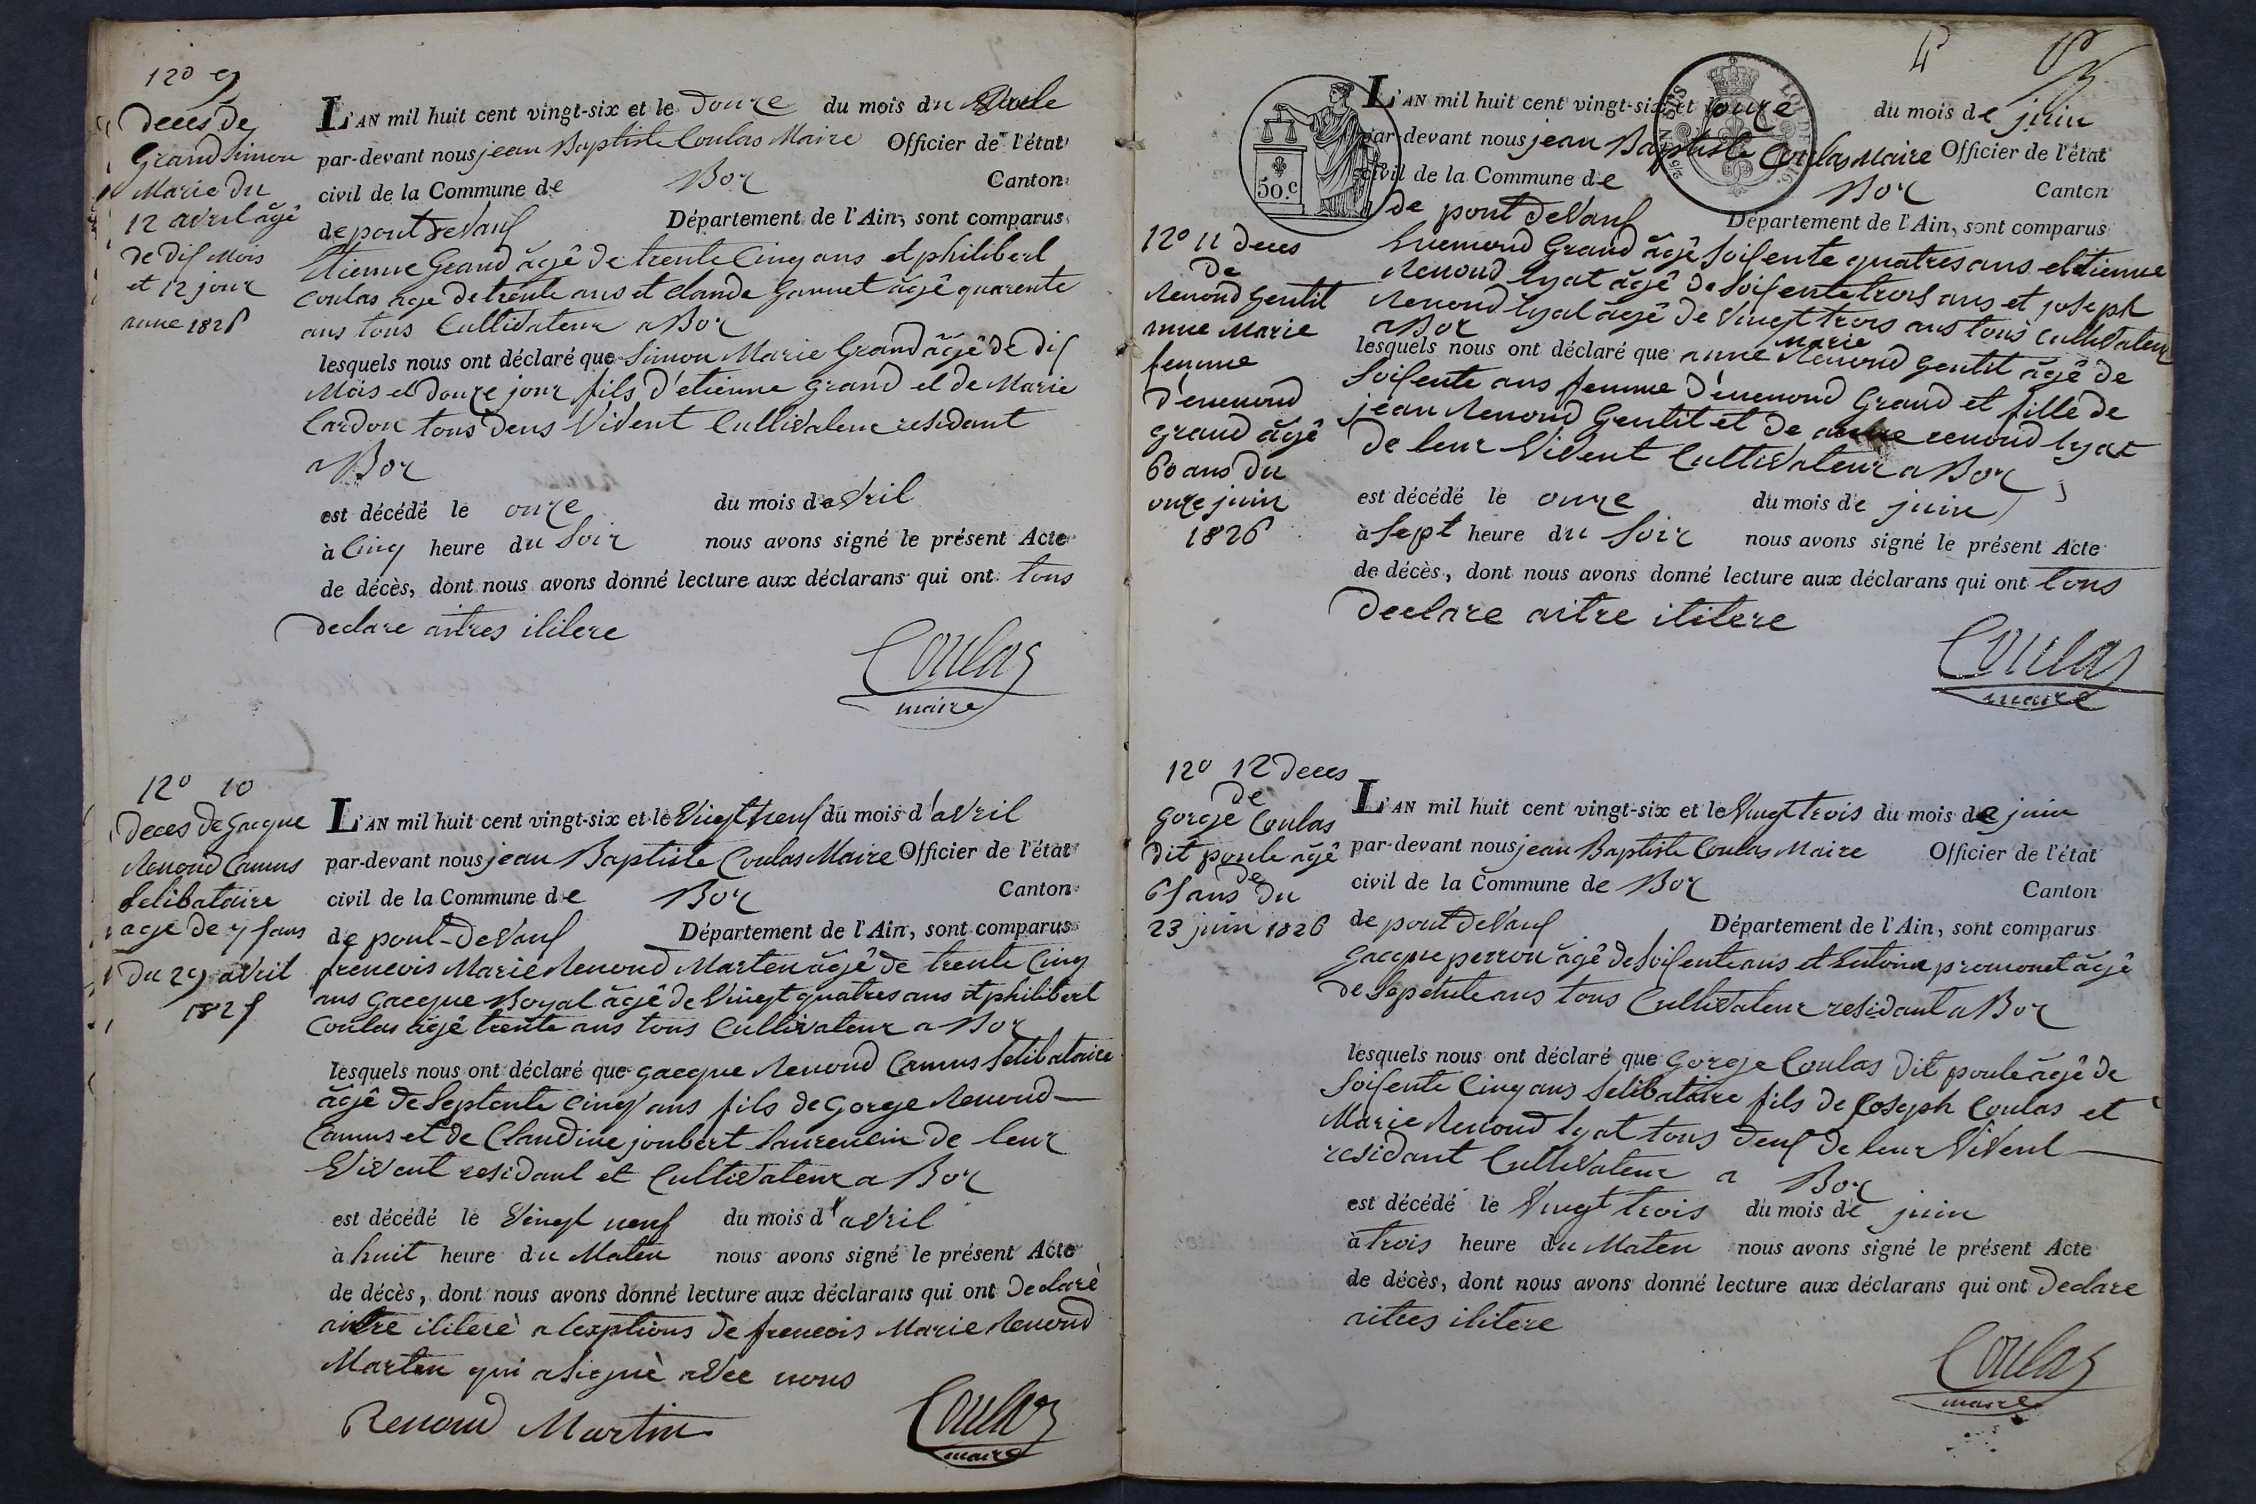 12° 9
deces de
Grand Simon
Marie du
12 avril âgê
de dis Mois
et 12 jour
anne 1826
L'AN mil huit cent vingt-six et le douze du mois du
par-devant nous jean Baptiste Coulas Maire Officier de l'état
civil de la Commune de Boz Canton
de pont deVaus Département de l'Ain, sont comparus
Etienne Grand âgê de trente Cinq ans et philibert
Coulas age de trente ans et Claude Gannet âgê quarente
ans tous CultiVateur a Boz
lesquels nous ont déclaré que Simon Marie Grand âgê de dis
Mois et douze jour fils d'etienne Grand et de Marie
Cardon tous deus ViVent CultiVateur residant
a Boz
est décédé le onze du mois d aVril
à Cinq heure du Soir nous avons signé le présent Acte
de décès, dont nous avons donné lecture aux déclarans qui ont tous
declare aitres ilitere
Coulas
maire
12° 10
deces de Gacque
Renond Camus
Selibataire
age de 75 ans
du 29 avril
1826
L'AN mil huit cent vingt-six et le Vingt neuf du mois d'aVril
par-devant nous jean Baptiste Coulas Maire Officier de l'état
civil de la Commune de Boz Canton
de pont-deVaus Département de l'Ain, sont comparus
frencois Marie Renond Marten âgê de trente Cinq
ans Gacque Boyat âgê de Vingt quatres ans et philibert
Coulas âgê trente ans tous Cultivateur a Boz
lesquels nous ont déclaré que Gacque Renond Camus Selibataire
âgê de Septente Cinq ans fils de Gorge Renond
Camus et de Claudine joubert Laurencin de leur
ViVent residant et CultiVateur a Boz
est décédé le Vingt neuf du mois d'aVril
à huit heure du Maten nous avons signé le présent Acte
de décès, dont nous avons donné lecture aux déclarans qui ont declarè
aitre ilitere a lexptions de frencois Marie Renond
Marten qui a Signè aVec nous
Renond Martin
Coulas
maire
4
50.C
L'AN mil huit cent vingt-six et onze du mois de juin
par-devant nous jean Baptiste Coulas Maire Officier de l'état
civil de la Commune de Boz Canton
de pont deVaus Département de l'Ain, sont comparus
12° 11 deces
de
Renond Gentit
anne Marie
femme
d'enemond
Grand âgê
60 ans du
onze juin
1826
Enemond Grand âgê Soisente quatres ans et Etienne
Renond lyat âgê de Soisente trois ans et joseph
Renond lyat âgê de Vingt trois ans tous CultiVateur
a Boz
lesquels nous ont déclaré que anne Marie Renond Gentit âgê de
Soisente ans femme d'enemond Grand et fille de
jean Renond Gentit et de renond lyat
de leur ViVent CultiVateur a Boz
est décédé le onze du mois de juin
à Sept heure du Soir nous avons signé le présent Acte
de décès, dont nous avons donné lecture aux déclarans qui ont tous
declare aitre ilitere
Coulas
maire
12° 12 deces
de
Gorge Coulas
dit poule âgê
de
65 ans du
23 juin 1826
L'AN mil huit cent vingt-six et le Vingt trois du mois de juin
par-devant nous jean Baptiste Coulas Maire Officier de l'état
civil de la Commune de Boz Canton
de pont deVaus Département de l'Ain, sont comparus
Gacque perron âgê de Soisente ans et Entoine promonet âgê
de Septente ans tous CultiVateur residant a Boz
lesquels nous ont déclaré que Gorge Coulas dit poule âgê de
Soisente Cinq ans Selibataire fils de Joseph Coulas et
Marie Renond lyat tous deus de leur ViVent
residant CultiVateur a Boz
est décédé le Vingt trois du mois de juin
à trois heure du Maten nous avons signé le présent Acte
de décès, dont nous avons donné lecture aux déclarans qui ont declare
aitres ilitere
Coulas
maire